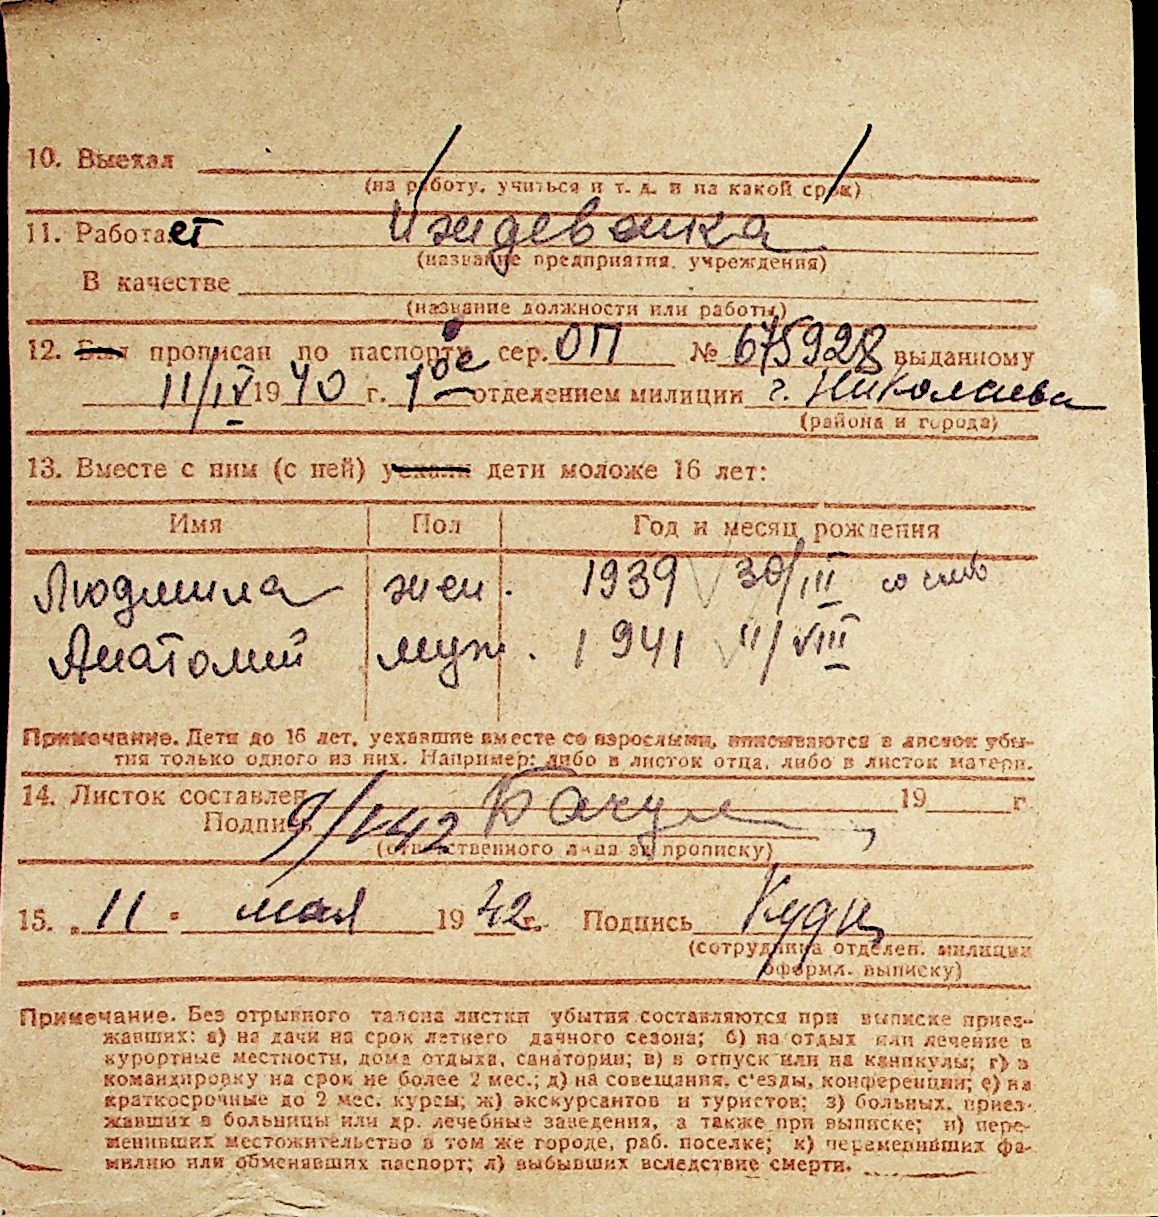 10. Выехал
(на работу, учиться и т. д. и на какой срок)
11. Работает Иждевенка
(название предприятия, учреждения)
В качестве
(название должности или работы)
12. Был прописан по паспорту сер. ОП № 675928 выданному
11/IV 1940 г. 1ое отделением милиции г. Николаева
(района и города)
13. Вместе с ним (с ней) уехали дети моложе 16 лет:
Имя Пол Год и месяц рождения
Людмила жен. 1939 30/III со слов
Анатолий муж. 1941 11/VIII
Примечание. Дети до 16 лет, уехавшие вместе со взрослыми, вписываются в листок убы-
тия только одного из них. Например: либо в листок отца, либо в листок матери.
14. Листок составлен 19 г.
Подпись 9/V 42
(ответственного лица за прописку)
15. „ 11 " мая 1942 г. Подпись
(сотрудника отделен. милиции
оформл. выписку)
Примечание. Без отрывного талона листки убытия составляются при выписке приез-
жавших: а) на дачи на срок летнего дачного сезона; б) на отдых или лечение в
курортные местности, дома отдыха, санатории; в) в отпуск или на каникулы; г) в
командировку на срок не более 2 мес.; д) на совещания, с'езды, конференции; е) на
краткосрочные до 2 мес. курсы; ж) экскурсантов и туристов; з) больных, приез-
жавших в больницы или др. лечебные заведения, а также при выписке; и) пере-
менивших местожительство в том же городе, раб. поселке; к) переменивших фа-
милию или обменявших паспорт; л) выбывших вследствие смерти.